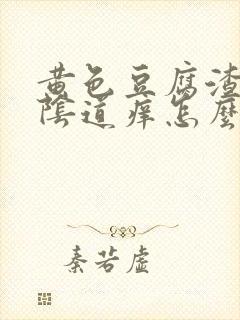 黄色豆腐渣
陰道痒怎麼
秦若虚